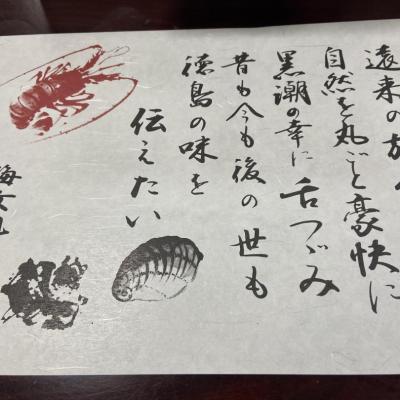 遠来の旅
自然を丸ごと豪快に
黒潮の幸に舌つづみ
昔も今も後の世も
徳島の味を
伝えたい